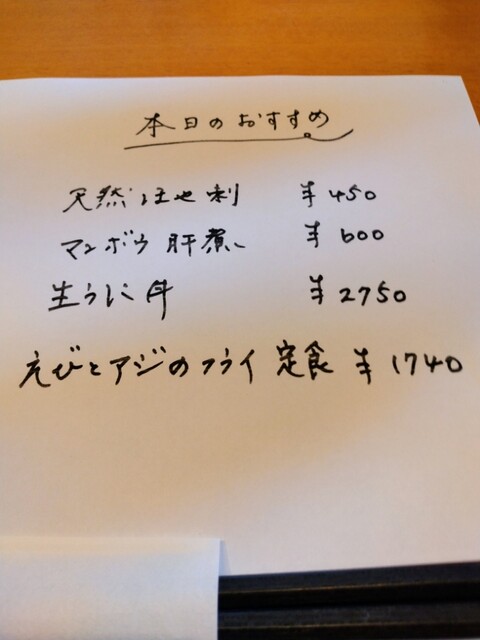 本日のおすすめ
天然ほや刺 ¥450
マンボウ肝煮 ¥600
生うに丼 ¥2750
えびとアジのフライ定食 ¥1740